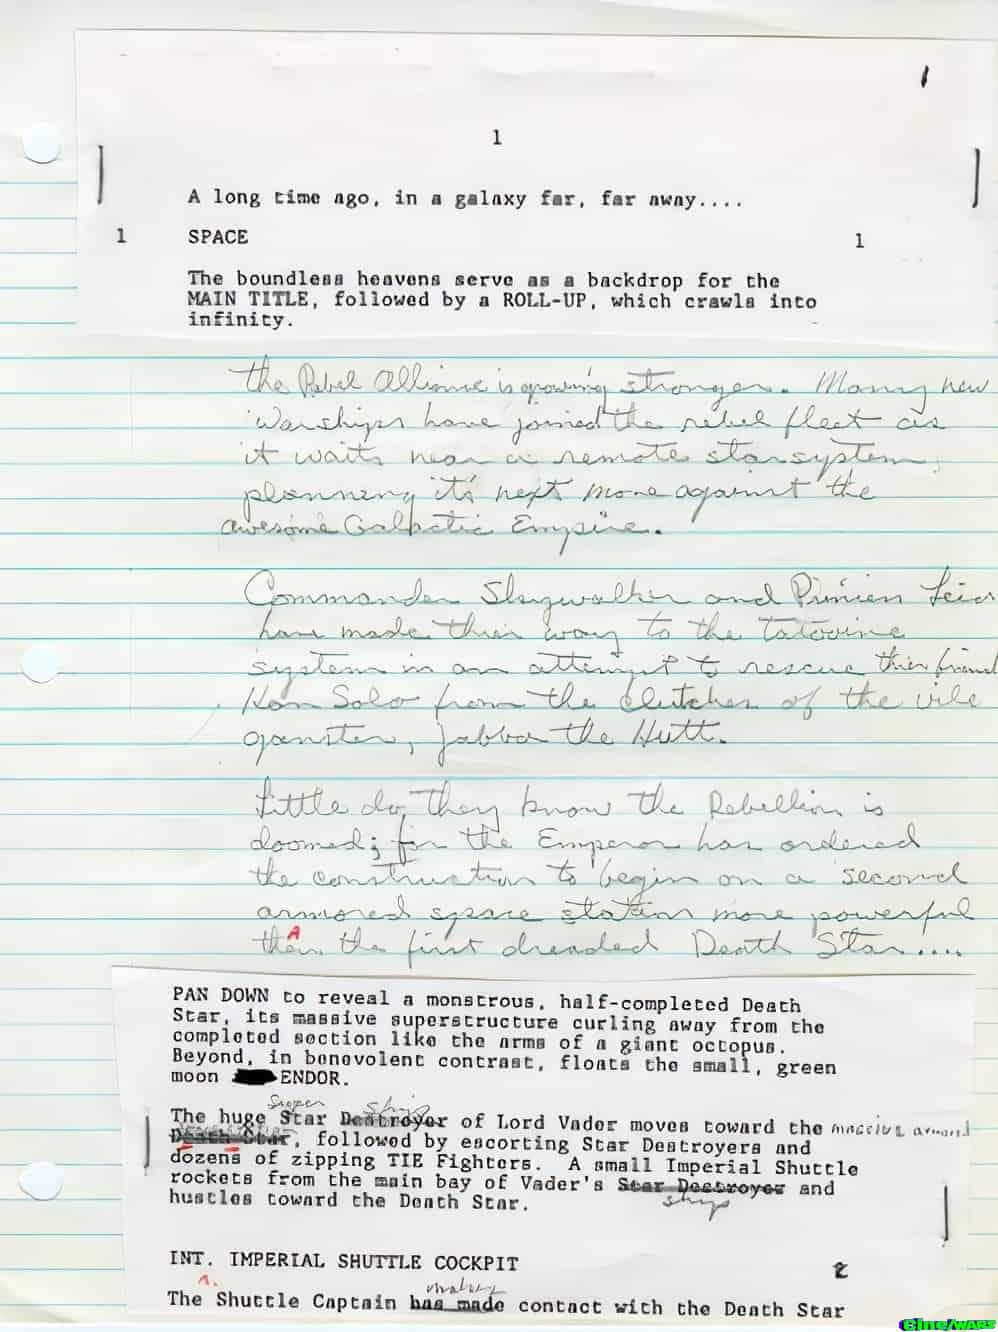 1
1
A long time ago, in a galaxy far, far away....
1 SPACE 1
The boundless heavens serve as a backdrop for the
MAIN TITLE, followed by a ROLL-UP, which crawls into
infinity.
the Rebel Alliance is growing stronger. Many new
Warships have joined the rebel fleet as
it waits near a remote starsystem,
planning it's next move against the
awesome Galactic Empire.
Commander Skywalker and Leia
have made their way to the Tatooine
system in an attempt to rescue thier friend
Han Solo from the clutches of the vile
ganster, Jabba the Hutt.
Little do they know the Rebellion is
doomed; for the Emperor has ordered
the construction to begin on a second
armored space station more powerful
than the first dreaded Death Star....
PAN DOWN to reveal a monstrous, half-completed Death
Star, its massive superstructure curling away from the
completed section like the arms of a giant octopus.
Beyond, in benevolent contrast, floats the small, green
moon ENDOR.
Super ship
The huge Star Destroyer of Lord Vader moves toward the massive armored
Death Star, followed by escorting Star Destroyers and
dozens of zipping TIE Fighters. A small Imperial Shuttle
rockets from the main bay of Vader's Star Destroyer and
ship
hustles toward the Death Star.
INT. IMPERIAL SHUTTLE COCKPIT 2
makes
The Shuttle Captain has made contact with the Death Star
Cine/WARS